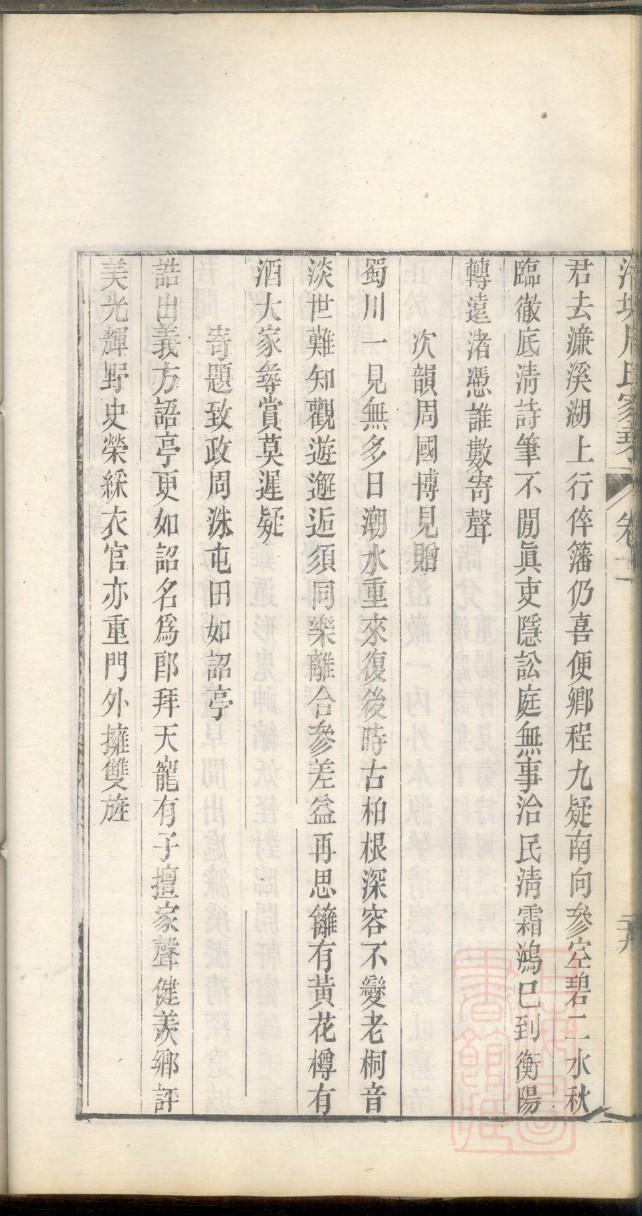 君去濂溪湖上行倅籓仍喜便鄉程九疑南向參空碧二水秋
臨徹底清詩筆不閒眞吏隱訟庭無事洽民淸霜鴻巳到衡陽
轉遠渚憑誰數寄聲
次韻周國博見贈
蜀川一見無多日潮水重來復後時古柏根深容不變老桐音
淡世難知觀遊邂逅須同樂離合參差益再思籬有黃花樽有
酒大家尋賞莫遲疑
寄題致政周洙屯田如詔亭
誥出義方語亭更如詔名爲郎拜天寵有子擅家聲健羨鄉評
美光輝野史榮綵衣官亦重門外擁雙旌